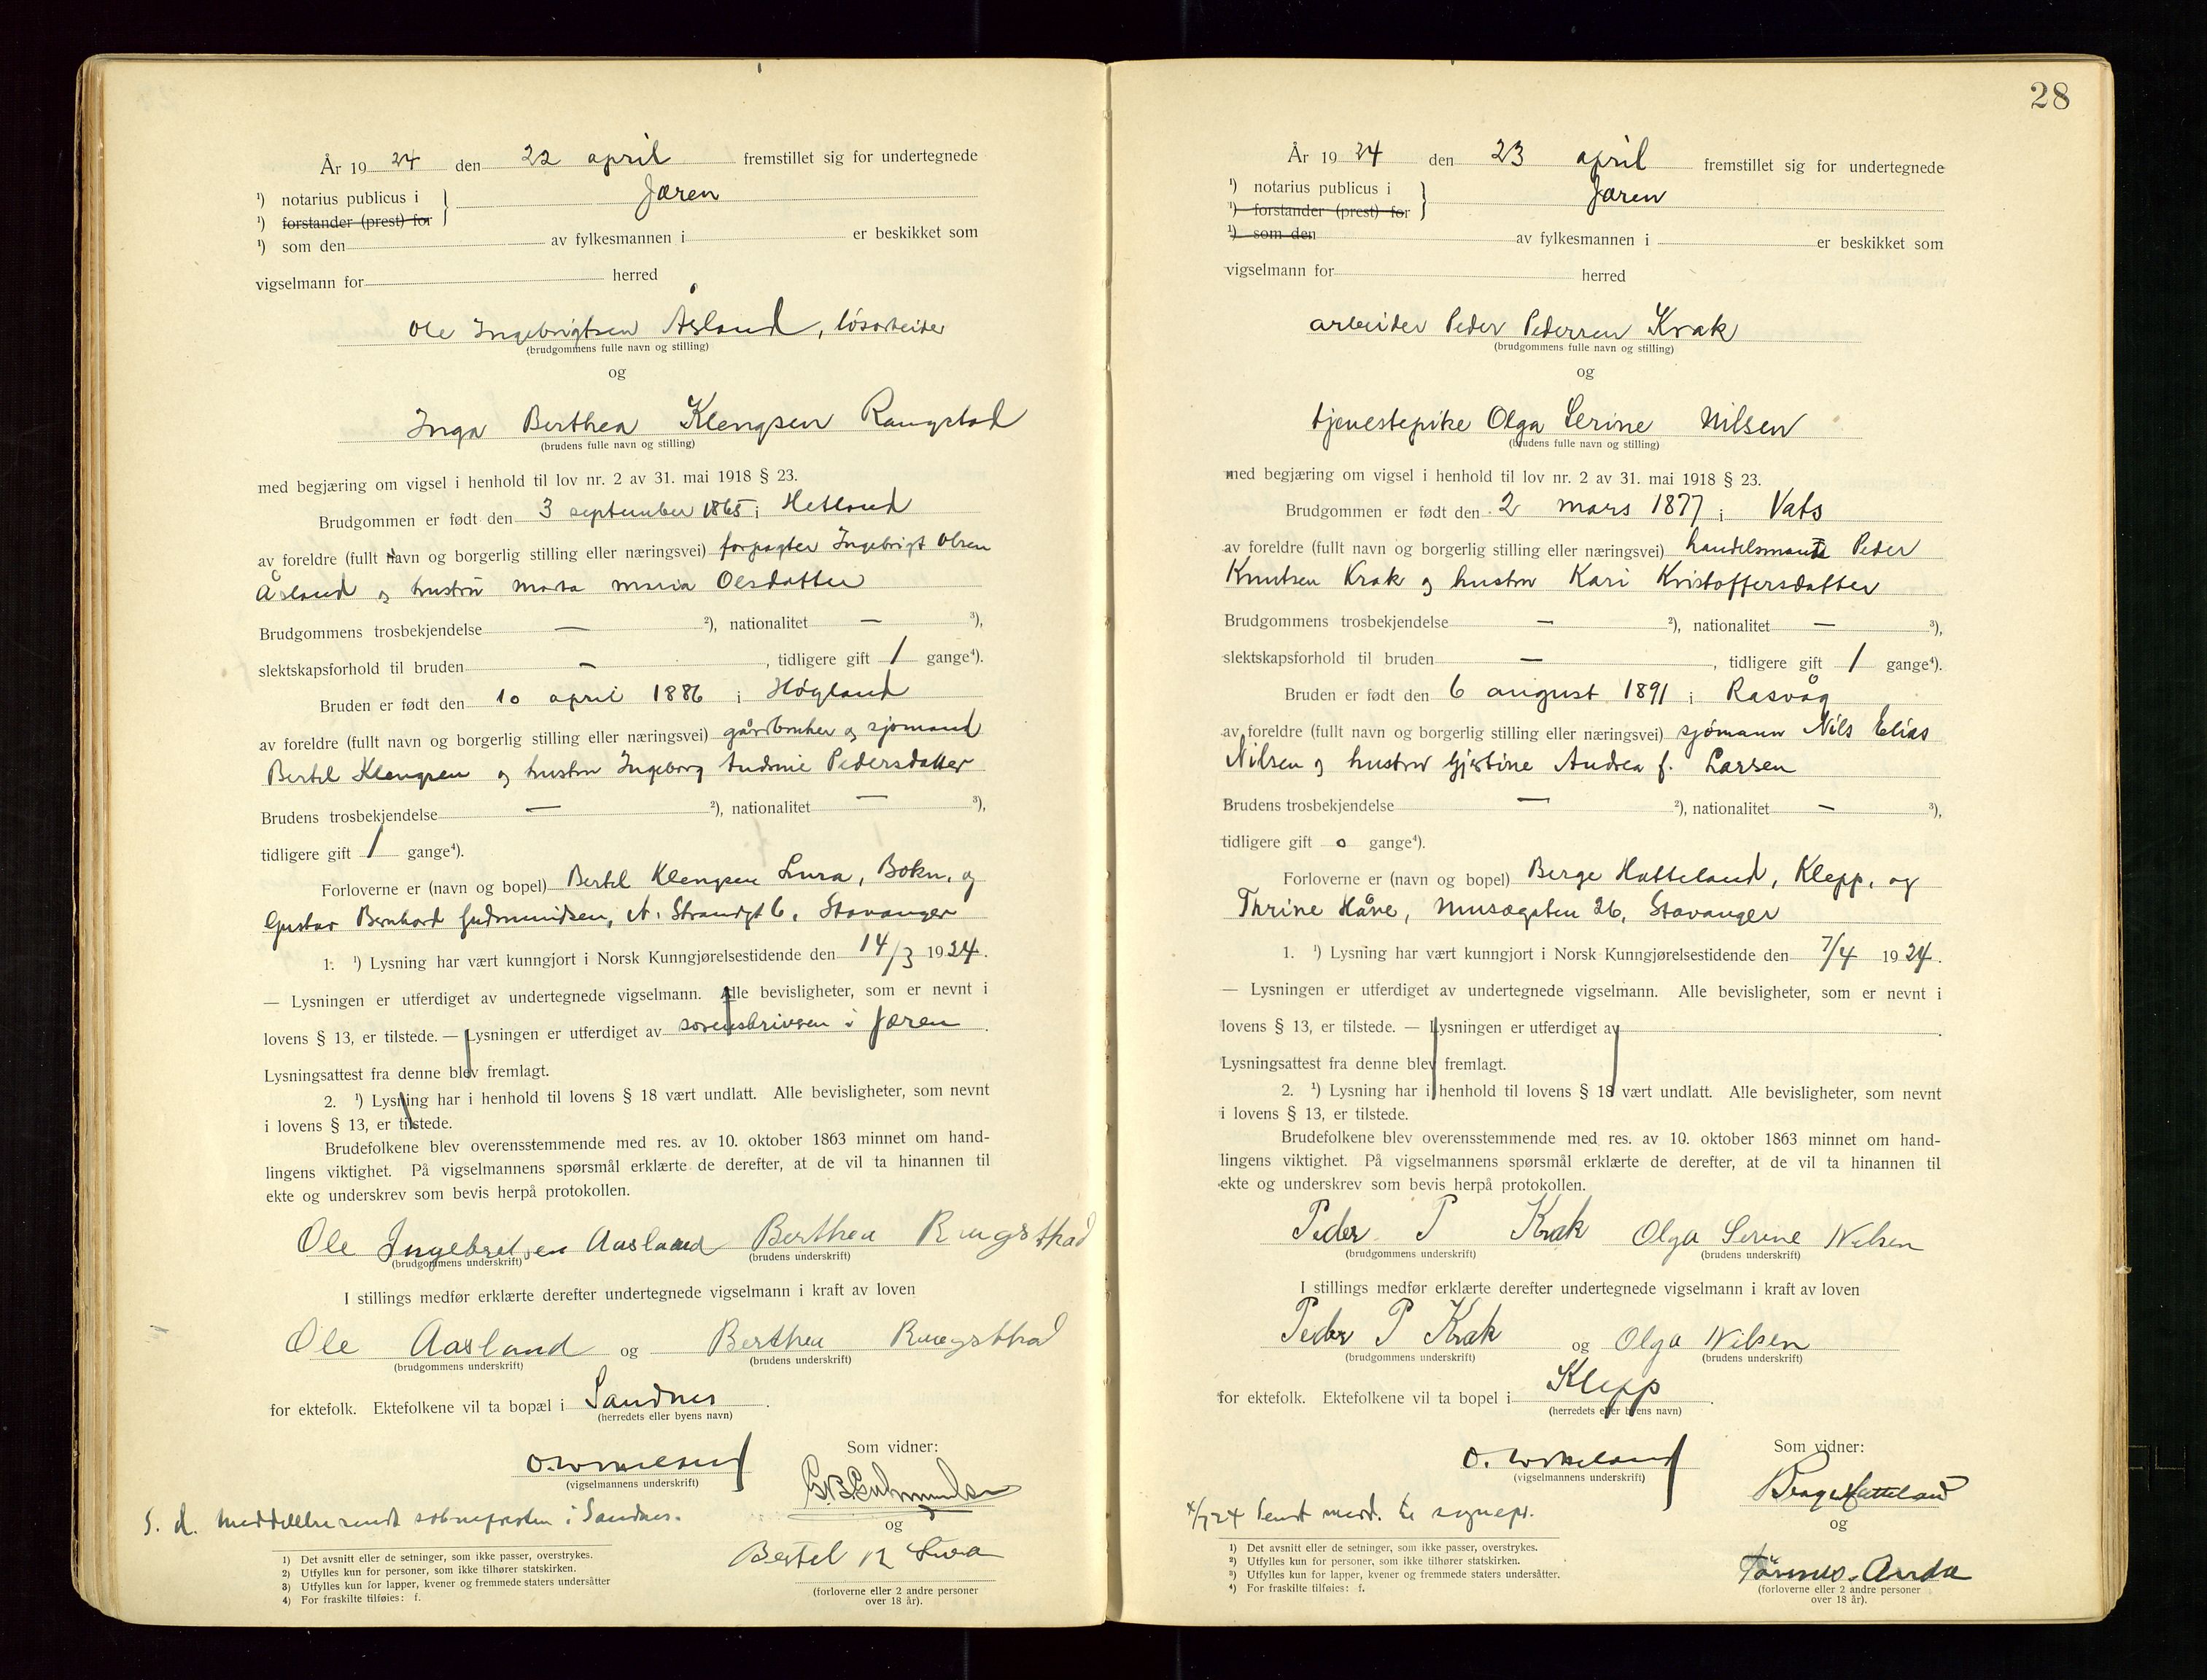 År 19 24 den 22 april fremstillet sig for undertegnede
¹) notarius publicus i } Jæren
¹) forstander (prest) for
¹) som den av fylkesmannen i er beskikket som
vigselmann for herred
Ole Ingebrigtsen Åsland, løsarbeider
(brudgommens fulle navn og stilling)
og
Inga Berthea Klengsen Raugstad
(brudens fulle navn og stilling)
med begjæring om vigsel i henhold til lov nr. 2 av 31. mai 1918 § 23.
Brudgommen er født den 3 september 1865 i Hetland
av foreldre (fullt navn og borgerlig stilling eller næringsvei) forpagter Ingebrigt Olsen
Åsland og hustru Marta Maria Olsdatter
Brudgommens trosbekjendelse — ²), nationalitet — ³),
slektskapsforhold til bruden — , tidligere gift 1 gange⁴).
Bruden er født den 10 april 1886 i Høgland
av foreldre (fullt navn og borgerlig stilling eller næringsvei) gårdbruker og sjømand
Bertel Klengsen og hustru Ingeborg Andrine Pedersdatter
Brudens trosbekjendelse — ²), nationalitet — ³),
tidligere gift 1 gange⁴).
Forloverne er (navn og bopel) Bertel Klengsen Lura, Bokn, og
Gustav Bernhard Gudmundsen, N. Strandgt 6, Stavanger
1. ¹) Lysning har vært kunngjort i Norsk Kunngjørelsestidende den 14/3 1924.
— Lysningen er utferdiget av undertegnede vigselmann. Alle bevisligheter, som er nevnt i
lovens § 13, er tilstede. — Lysningen er utferdiget av sorenskriveren i Jæren.
Lysningsattest fra denne blev fremlagt.
2. ¹) Lysning har i henhold til lovens § 18 vært undlatt. Alle bevisligheter, som nevnt
i lovens § 13, er tilstede.
Brudefolkene blev overensstemmende med res. av 10. oktober 1863 minnet om hand-
lingens viktighet. På vigselmannens spørsmål erklærte de derefter, at de vil ta hinannen til
ekte og underskrev som bevis herpå protokollen.
Ole Ingebretsen Aasland Berthea Raugsthad
(brudgommens underskrift) (brudens underskrift)
I stillings medfør erklærte derefter undertegnede vigselmann i kraft av loven
Ole Aasland og Berthea Raugsthad
(brudgommens underskrift) (brudens underskrift)
for ektefolk. Ektefolkene vil ta bopæl i Sandnes.
(herredets eller byens navn)
O. Wikeland
(vigselmannens underskrift)
Som vidner:
G. B. Gudmundsen
S. d. meddelelse sendt sognepresten i Sandnes.
og
Bertel K Lura
(forloverne eller 2 andre personer
over 18 år).
1) Det avsnitt eller de setninger, som ikke passer, overstrykes.
2) Utfylles kun for personer, som ikke tilhører statskirken.
3) Utfylles kun for lapper, kvener og fremmede staters undersåtter
4) For fraskilte tilføies: f.
28
År 19 24 den 23 april fremstillet sig for undertegnede
¹) notarius publicus i } Jæren
¹) forstander (prest) for
¹) som den av fylkesmannen i er beskikket som
vigselmann for herred
arbeider Peder Pedersen Krak
(brudgommens fulle navn og stilling)
og
tjenestepike Olga Serine Nilsen
(brudens fulle navn og stilling)
med begjæring om vigsel i henhold til lov nr. 2 av 31. mai 1918 § 23.
Brudgommen er født den 2 mars 1877 i Vats
av foreldre (fullt navn og borgerlig stilling eller næringsvei) handelsmann Peder
Knutsen Krak og hustru Kari Kristoffersdatter
Brudgommens trosbekjendelse — ²), nationalitet — ³),
slektskapsforhold til bruden — , tidligere gift 1 gange⁴).
Bruden er født den 6 august 1891 i Rasvåg
av foreldre (fullt navn og borgerlig stilling eller næringsvei) sjømann Nils Elias
Nilsen og hustru Gjertine Andrea f. Larsen
Brudens trosbekjendelse — ²), nationalitet — ³),
tidligere gift 0 gange⁴).
Forloverne er (navn og bopel) Berge Hatteland, Klepp, og
Thrine Håve, Musægaten 26, Stavanger
1. ¹) Lysning har vært kunngjort i Norsk Kunngjørelsestidende den 7/4 1924.
— Lysningen er utferdiget av undertegnede vigselmann. Alle bevisligheter, som er nevnt i
lovens § 13, er tilstede. — Lysningen er utferdiget av .
Lysningsattest fra denne blev fremlagt.
2. ¹) Lysning har i henhold til lovens § 18 vært undlatt. Alle bevisligheter, som nevnt
i lovens § 13, er tilstede.
Brudefolkene blev overensstemmende med res. av 10. oktober 1863 minnet om hand-
lingens viktighet. På vigselmannens spørsmål erklærte de derefter, at de vil ta hinannen til
ekte og underskrev som bevis herpå protokollen.
Peder P Krak Olga Serine Nilsen
(brudgommens underskrift) (brudens underskrift)
I stillings medfør erklærte derefter undertegnede vigselmann i kraft av loven
Peder P Krak og Olga Nilsen
(brudgommens underskrift) (brudens underskrift)
for ektefolk. Ektefolkene vil ta bopel i Klepp.
(herredets eller byens navn)
O. Wikeland
(vigselmannens underskrift)
Som vidner:
Berge Hatteland
24 Sendt medd. til sognepr.
og
Tønnes Anda
(forloverne eller 2 andre personer
over 18 år).
¹) Det avsnitt eller de setninger, som ikke passer, overstrykes.
²) Utfylles kun for personer, som ikke tilhører statskirken.
³) Utfylles kun for lapper, kvener og fremmede staters undersåtter.
⁴) For fraskilte tilføies: f.